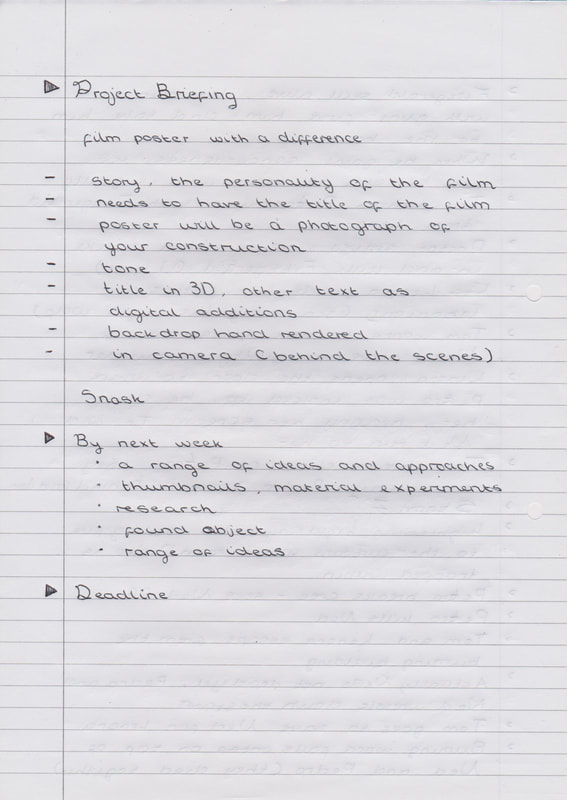 Project Briefing
film poster with a difference
- story, the personality of the film
- needs to have the title of the film
- poster will be a photograph of
your construction
- tone
- title in 3D, other text as
digital additions
- backdrop hand rendered
- in camera (behind the scenes)
Snask
By next week
· a range of ideas and approaches
· thumbnails, material experiments
· research
· found object
· range of ideas
Deadline